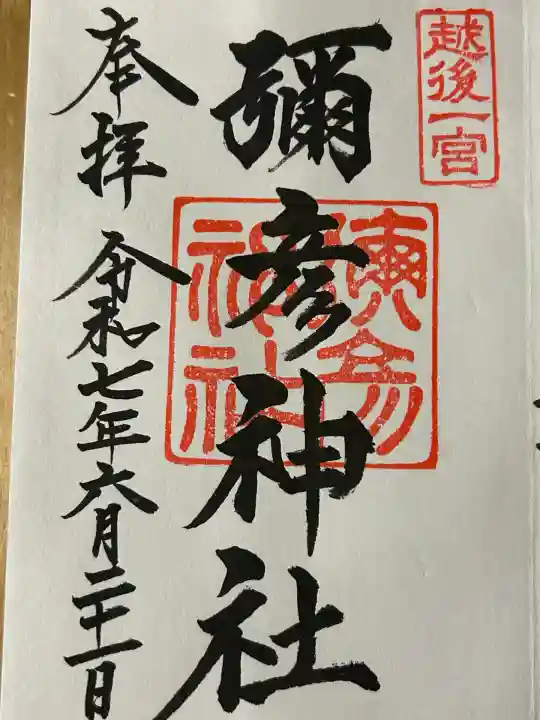 越後一宮
彌彦神社
奉拝 令和七年六月二十一日